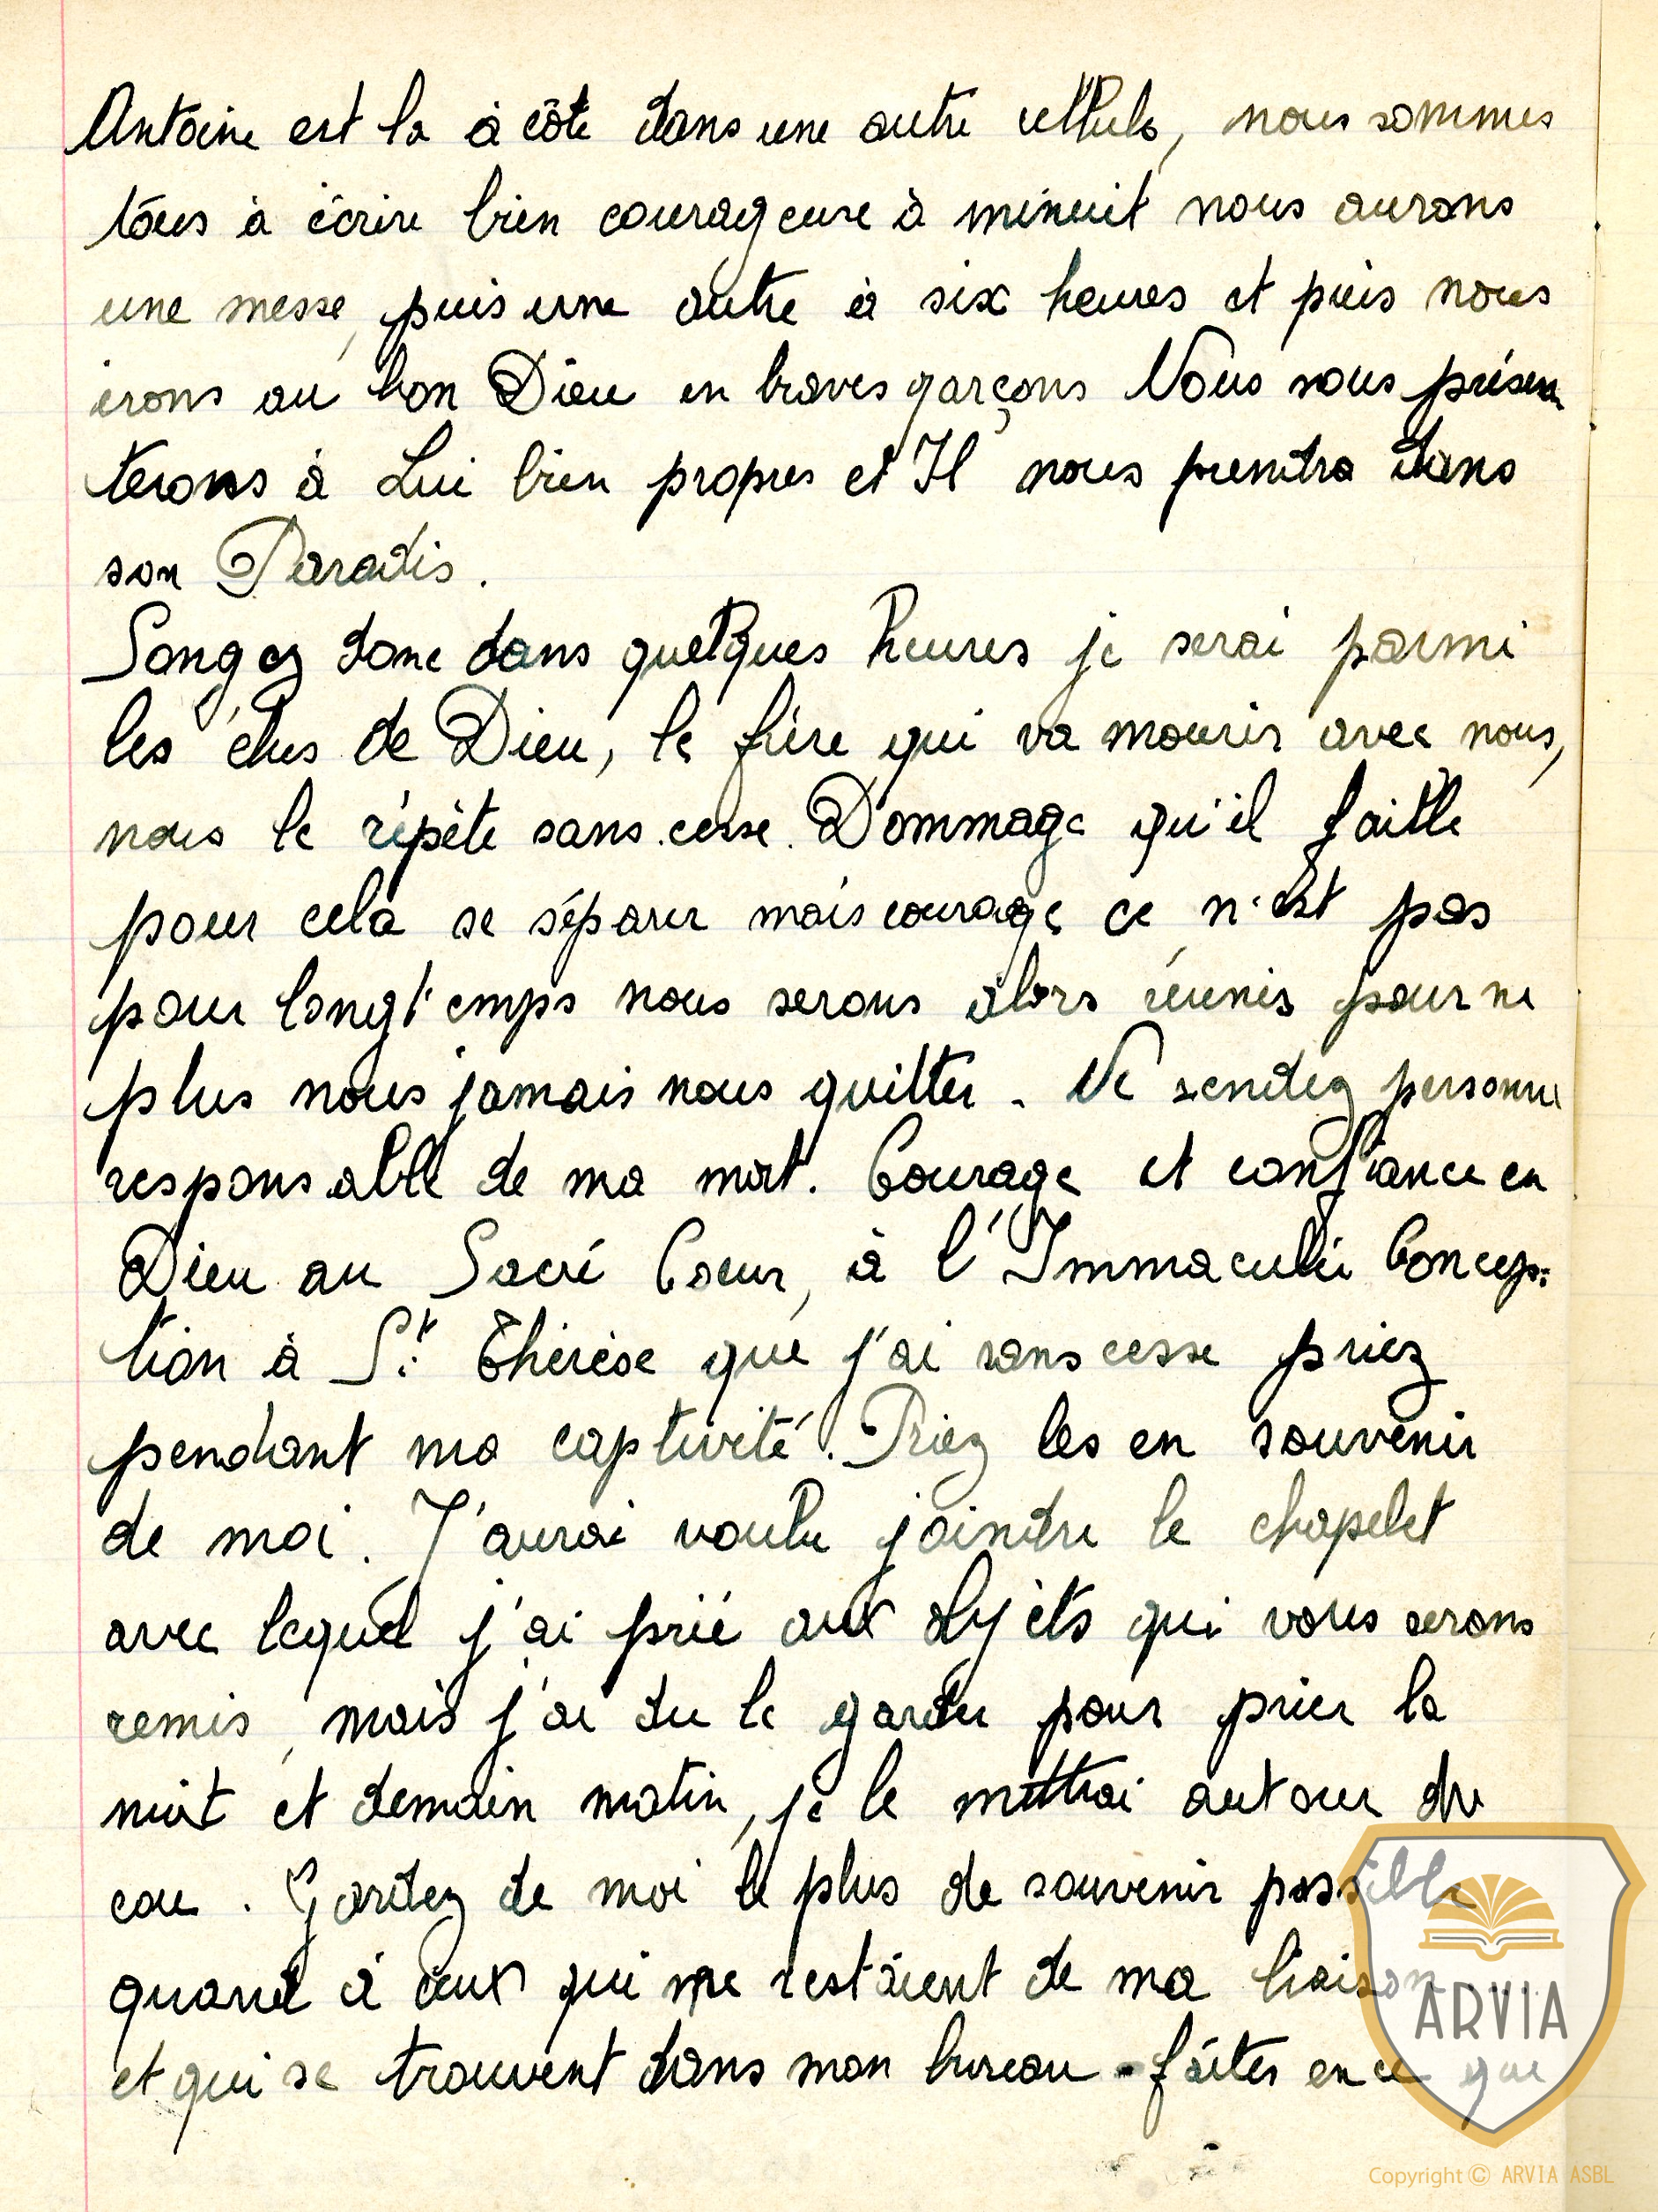 Antoine est la à côté dans une autre cellule, nous sommes
tous à écrire bien courageuse à minuit nous aurons
une messe, puis une autre à six heures et puis nous
irons au bon Dieu en braves garçons Nous nous présen
terons à Lui bien propres et Il nous prendra dans
son Paradis.
Songez donc dans quelques heures je serai parmi
les élus de Dieu, le frère qui va mourir avec nous,
nous le répète sans cesse. Dommage qu'il faille
pour cela se séparer mais courage ce n'est pas
pour longt'emps nous serons alors réunis pour ne
plus nous jamais nous quitter - Ne rendez personne
responsable de ma mort. Courage et confiance en
Dieu au Sacré Coeur, à l'Immaculée Concep-
tion à St Thérèse que j'ai sans cesse priez
pendant ma captivité. Priez les en souvenir
de moi. J'aurai voulu joindre le chapelet
avec lequel j'ai prié aux objets qui vous serons
remis, mais j'ai du le garder pour prier la
nuit et demain matin, je le mettrai autour du
cou. Gardez de moi le plus de souvenir possible
quand à ceux qui me restaient de ma liaison
et qui se trouvent dans mon bureau - faites en ce que
ARVIA
Copyright © ARVIA ASBL